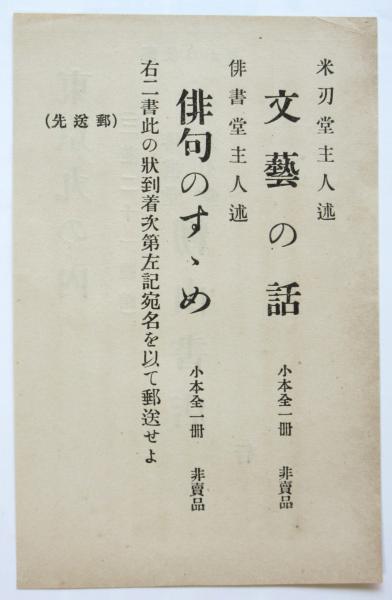 米刃堂主人述
文藝の話 小本全一冊 非賣品
俳書堂主人述
俳句のすゝめ 小本全一冊 非賣品
右二書此の狀到着次第左記宛名を以て郵送せよ
(郵送先)